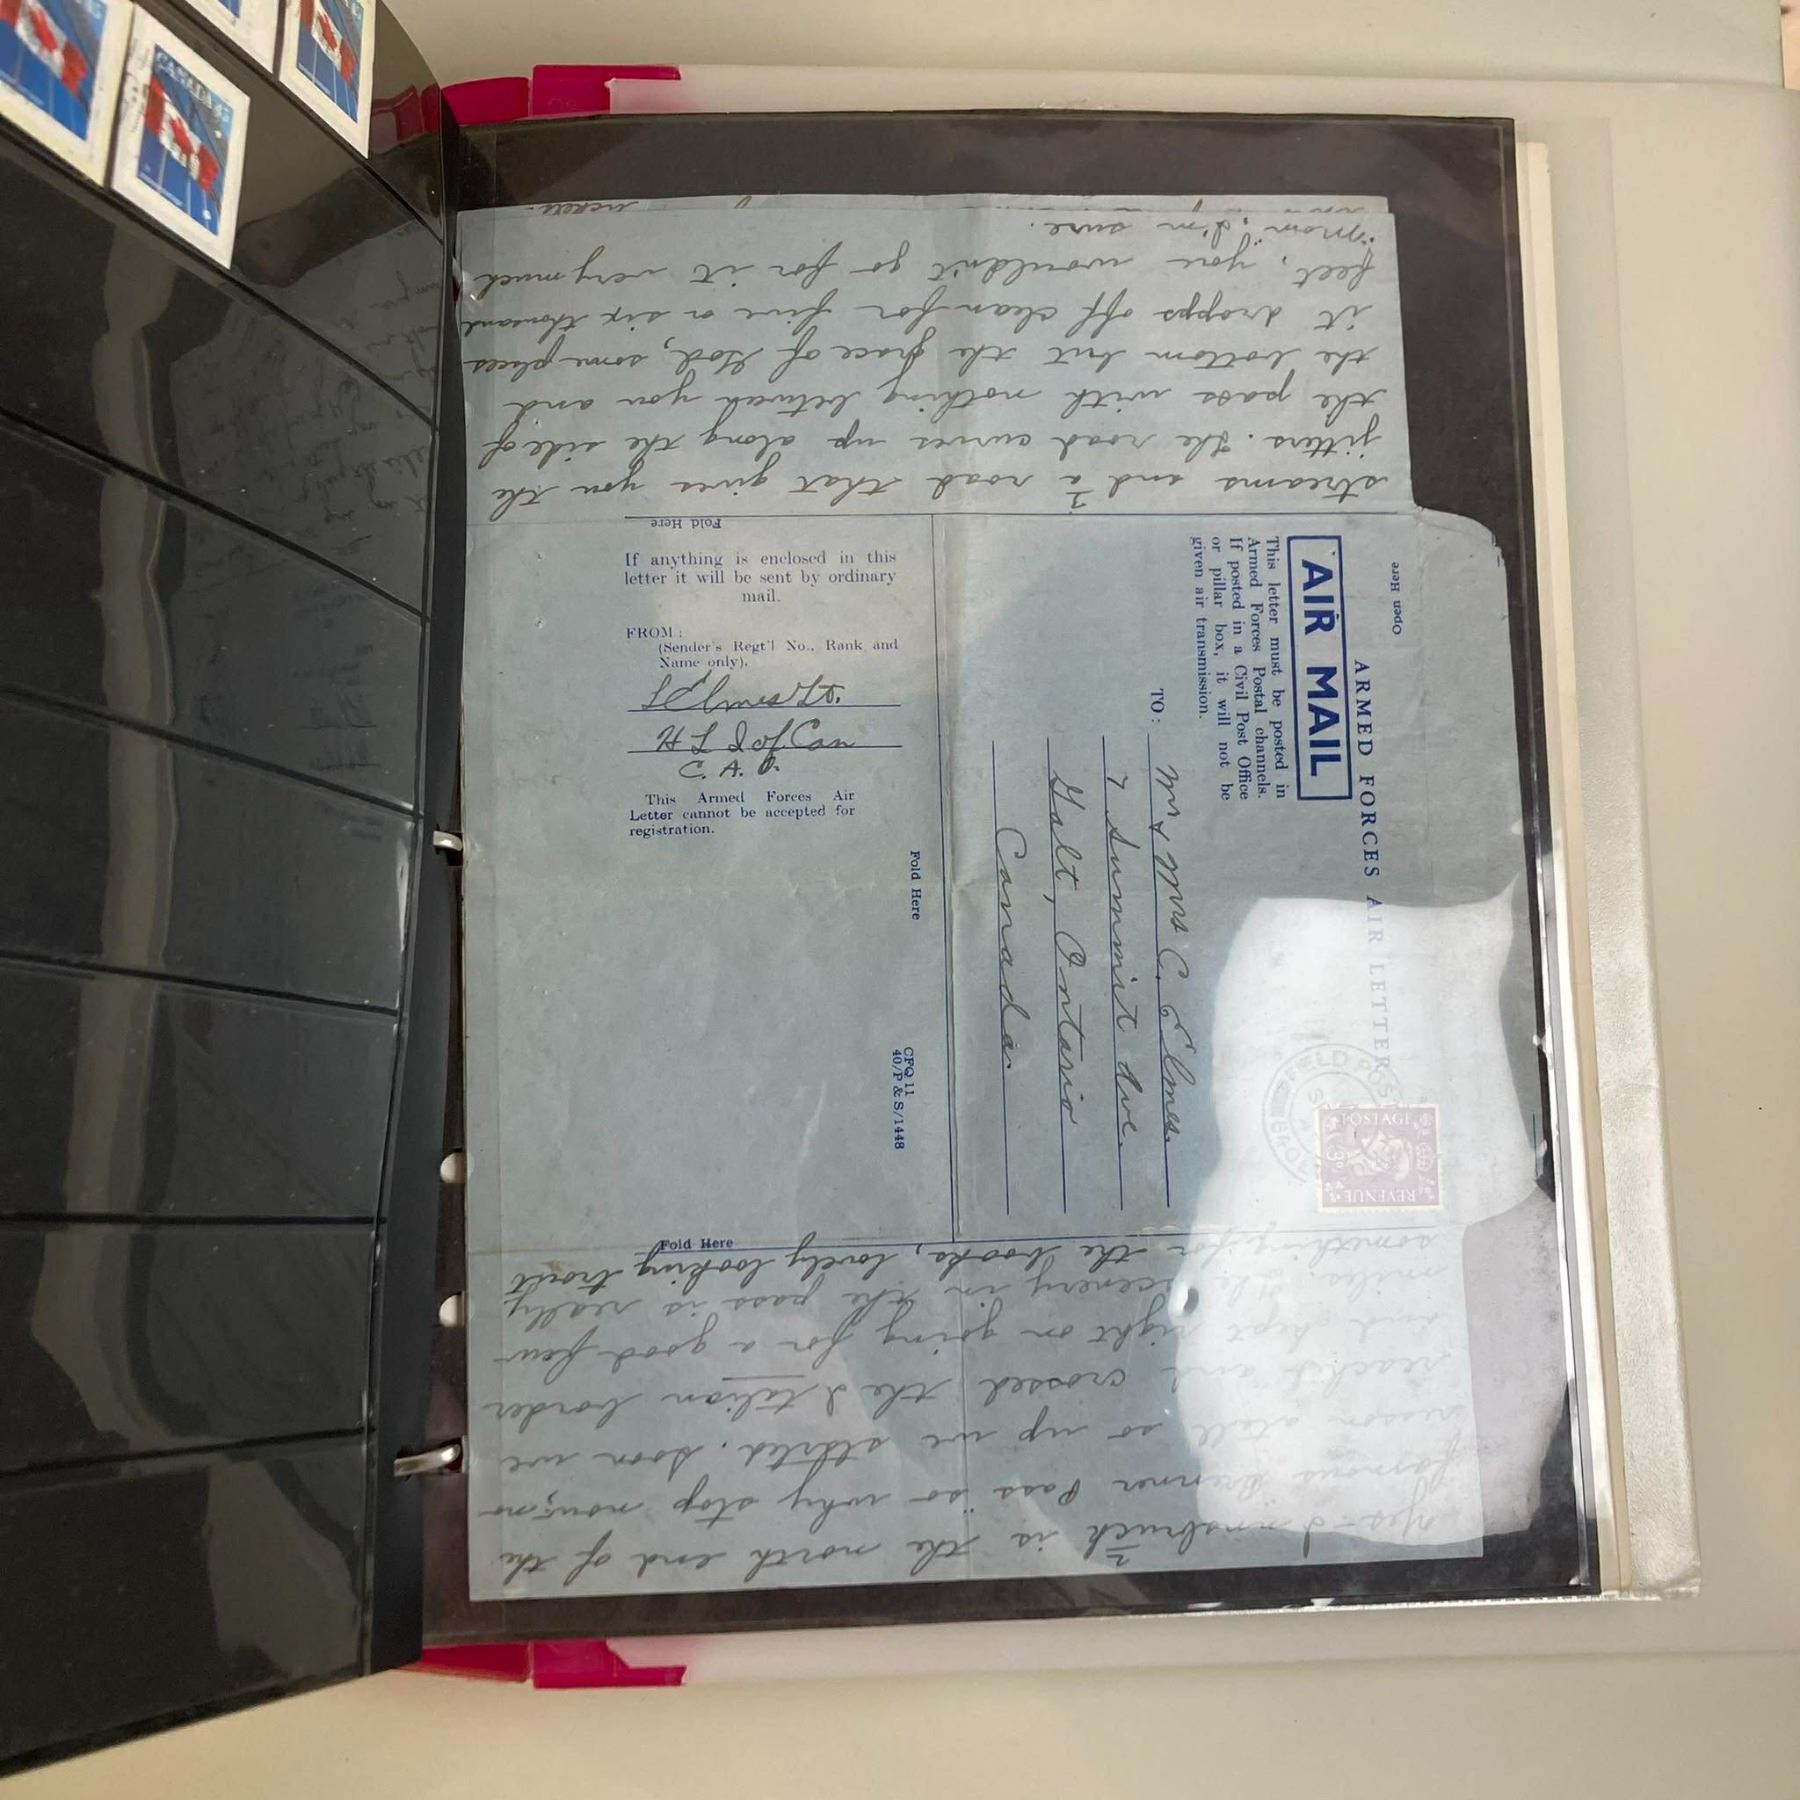 CANADA 45
yes - Innsbruck is the north end of the
famous Brenner Pass so why stop now, no
reason atall so up we started. Soon we
reached and crossed the Italian border
and kept right on going for a good few
miles. The scenery in the pass is really
something for the books, lovely looking trout
streams and a road that gives you the
jitters. The road curves up along the side of
the pass with nothing between you and
the bottom but the grace of God, some places
it dropps off clean for five or six thousand
feet, you wouldn't go for it very much
"Mom", I'm sure.
Fold Here
If anything is enclosed in this
letter it will be sent by ordinary
mail.
FROM:
(Sender's Regt'l No., Rank and
Name only).
L Elmes Lt.
H L I of Can
C. A. O.
This Armed Forces Air
Letter cannot be accepted for
registration.
Fold Here
CFQ 11
40/P & S/1448
Fold Here
Open Here
ARMED FORCES AIR LETTER
AIR MAIL
This letter must be posted in
Armed Forces Postal channels.
If posted in a Civil Post Office
or pillar box, it will not be
given air transmission.
TO:
Mr & Mrs C. Elmes.
7 Summit Ave.
Galt, Ontario
Canada.
FIELD POST
POSTAGE
3D
REVENUE